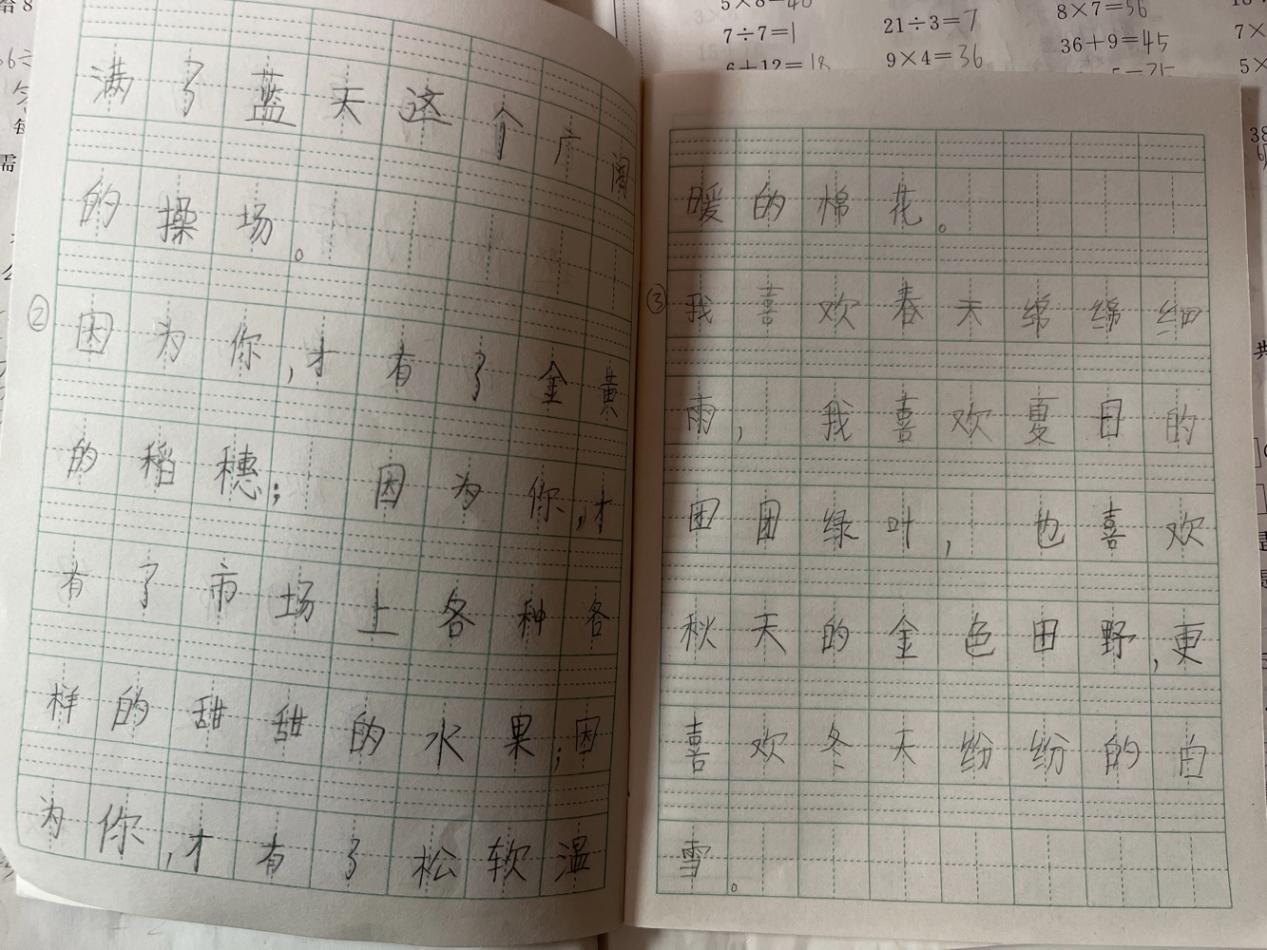 满了蓝天这个广阔
的操场。
②因为你,才有了金黄
的稻穗; 因为你,才
有了市场上各种各
样的甜甜的水果;因
为你,才有了松软温
暖的棉花。
③我喜欢春天绵绵细
雨, 我喜欢夏日的
团团绿叶, 也喜欢
秋天的金色田野,更
喜欢冬天纷纷的白
雪。
5×8=40
7÷7=1
6+12=18
21÷3=7
9×4=36
8×7=56
36+9=45